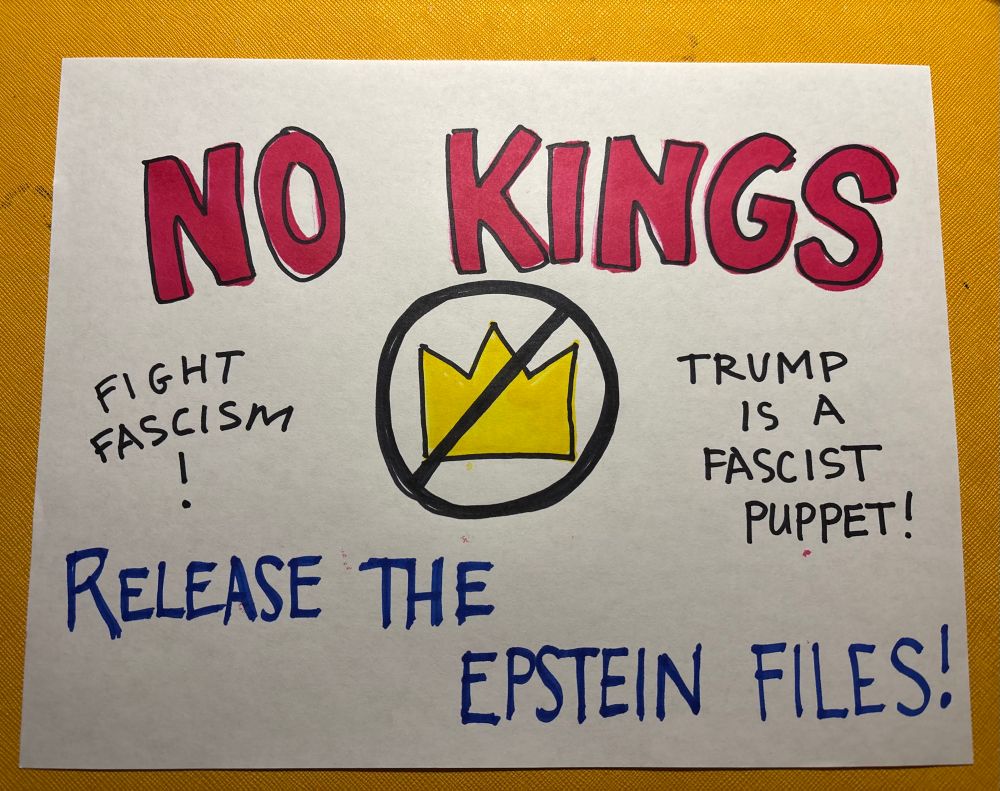 NO KINGS
FIGHT
FASCISM
!
TRUMP
IS A
FASCIST
PUPPET!
RELEASE THE
EPSTEIN FILES!